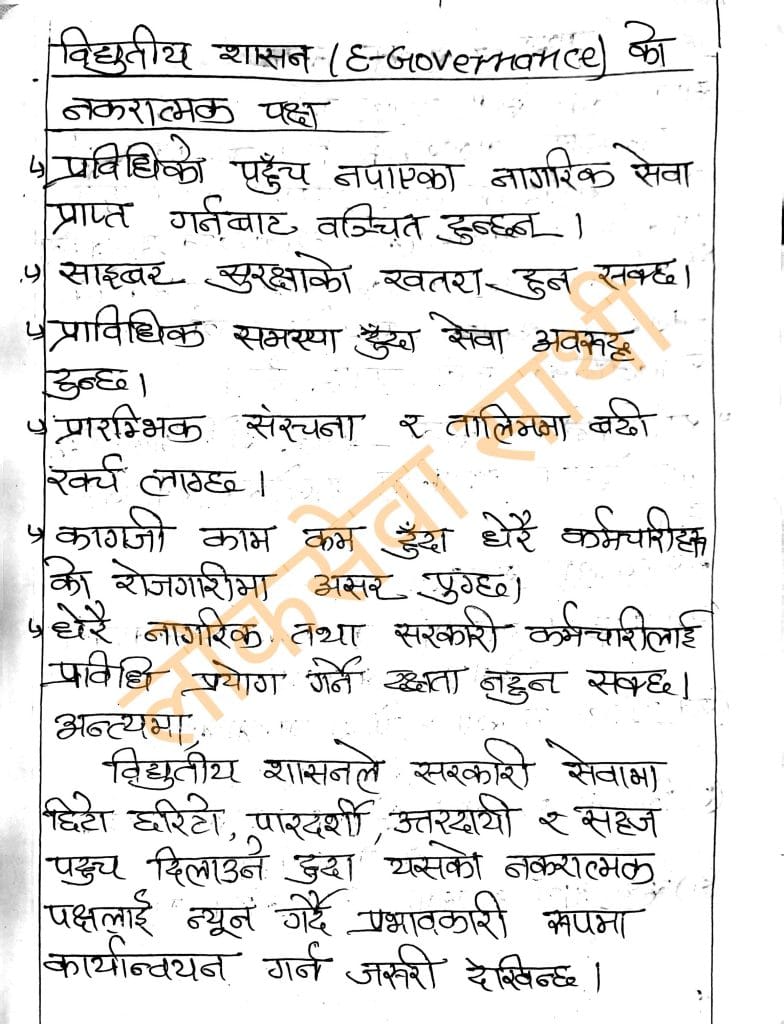 विद्युतीय शासन (E-Governance) को
नकरात्मक पक्ष
↳ प्रविधिको पहुँच नपाएका नागरिक सेवा
प्राप्त गर्नबाट वञ्चित हुन्छन् ।
↳ साइबर सुरक्षाको खतरा हुन सक्छ।
↳ प्राविधिक समस्या हुँदा सेवा अवरुद्ध
हुन्छ।
↳ प्रारम्भिक संरचना र तालिममा बढी
खर्च लाग्छ ।
↳ कागजी काम कम हुँदा धेरै कर्मचारीहरू
को रोजगारीमा असर पुग्छ।
↳ धेरै नागरिक तथा सरकारी कर्मचारीलाई
प्राविधि प्रयोग गर्ने क्षता नहुन सक्छ।
अन्त्यमा,
विद्युतीय शासनले सरकारी सेवामा
छिटो छरिटो, पारदर्शी, उत्तरदायी र सहज
पहुच दिलाउने हुदा यसको नकरात्मक
पक्षलाई न्यून गर्दै प्रभावकारी रूपमा
कार्यान्वयन गर्न जरुरी देखिन्छ ।
लोकसेवा साथी